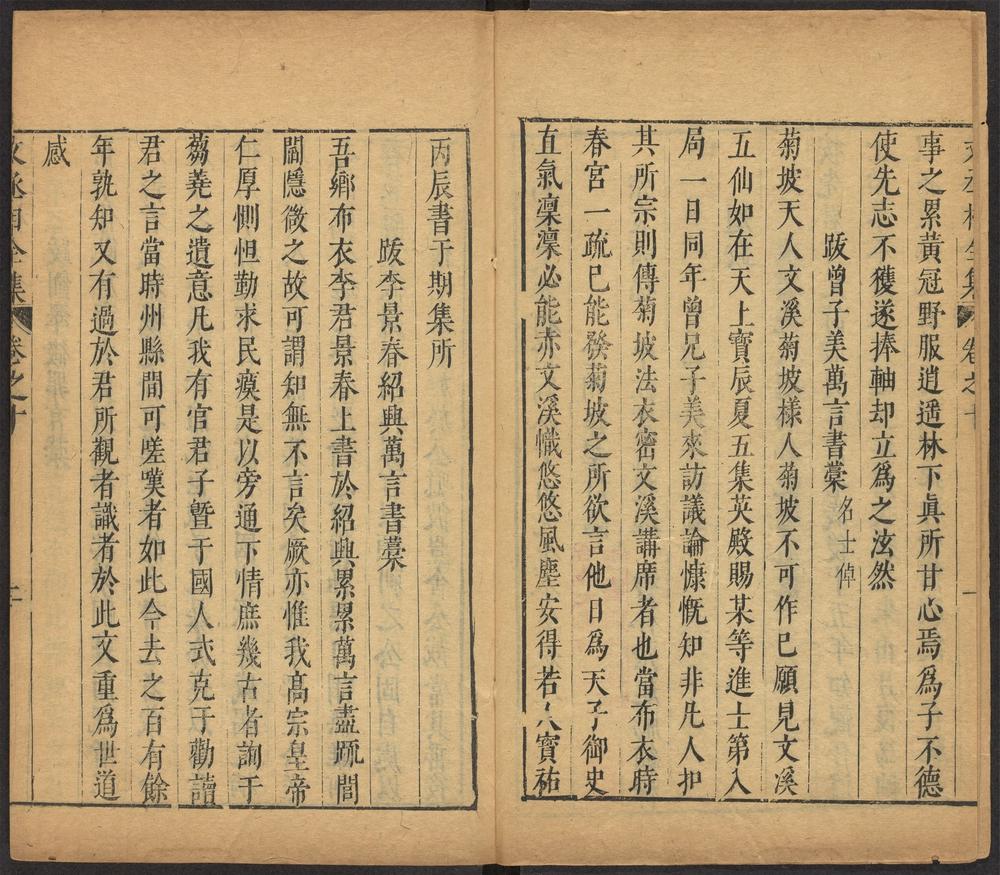 文丞相全集 卷之十 一
事之累黃冠野服逍遥林下眞所甘心焉爲子不德
使先志不獲遂捧軸却立爲之泫然
跋曾子美萬言書槀 名士倬
菊坡天人文溪菊坡樣人菊坡不可作已願見文溪
五仙如在天上寶辰夏五集英殿賜某等進士第入
局一日同年曾兄子美來訪議論慷慨知非凡人扣
其所宗則傳菊坡法衣密文溪講席者也當布衣時
春宮一疏已能發菊坡之所欲言他日爲天子御史
直氣凜凜必能亦文溪幟悠悠風塵安得若人寶祐
丙辰書于期集所
跋李景春紹興萬言書藁
吾鄉布衣李君景春上書於紹興累累萬言盡疏閭
閻隱微之故可謂知無不言矣厥亦惟我高宗皇帝
仁厚惻怛勤求民瘼是以旁通下情庶幾古者詢于
芻蕘之遺意凡我有官君子曁于國人式克于勸讀
君之言當時州縣間可嗟嘆者如此今去之百有餘
年孰知又有過於君所觀者識者於此文重爲世道
感
文丞相全集 卷之十 二